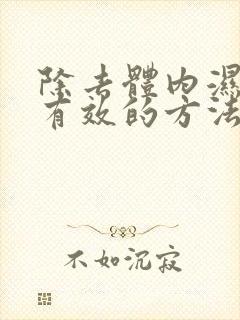 除去體內濕
有效的方法
不如沉寂